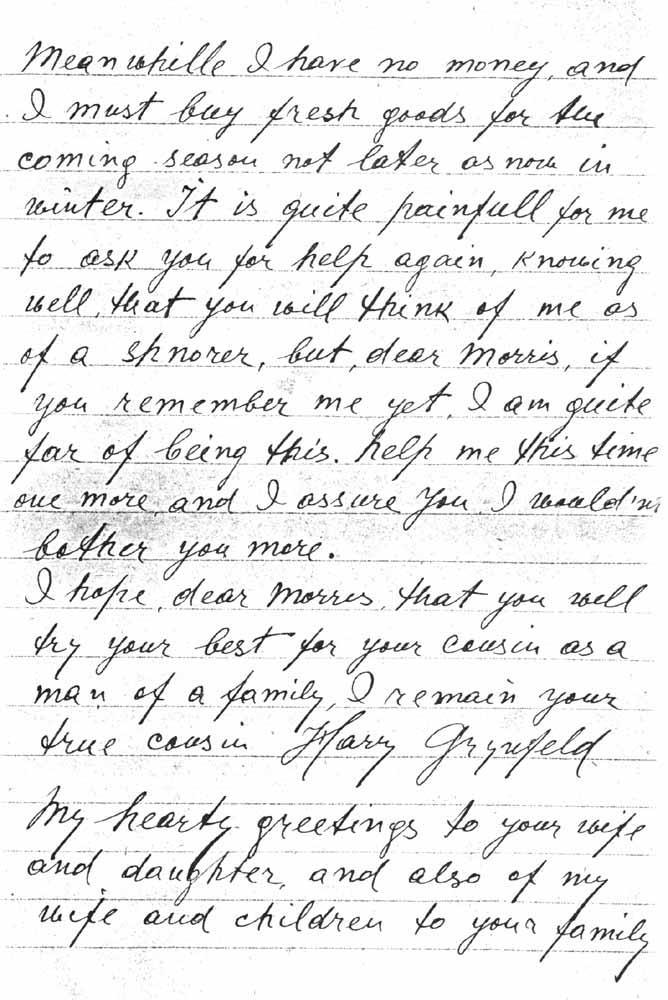 Meanwhille I have no money, and
I must buy fresh goods for the
coming season not later as now in
winter. It is quite painfull for me
to ask you for help again, knowing
well, that you will think of me as
of a shnorer, but, dear Morris, if
you remember me yet, I am quite
far of being this. help me this time
one more, and I assure you, I would'nt
bother you more.
I hope, dear Morris, that you will
try your best for your cousin as a
man of a family, I remain your
true cousin Harry Grynfeld
My hearty greetings to your wife
and daughter, and also of my
wife and children to your family